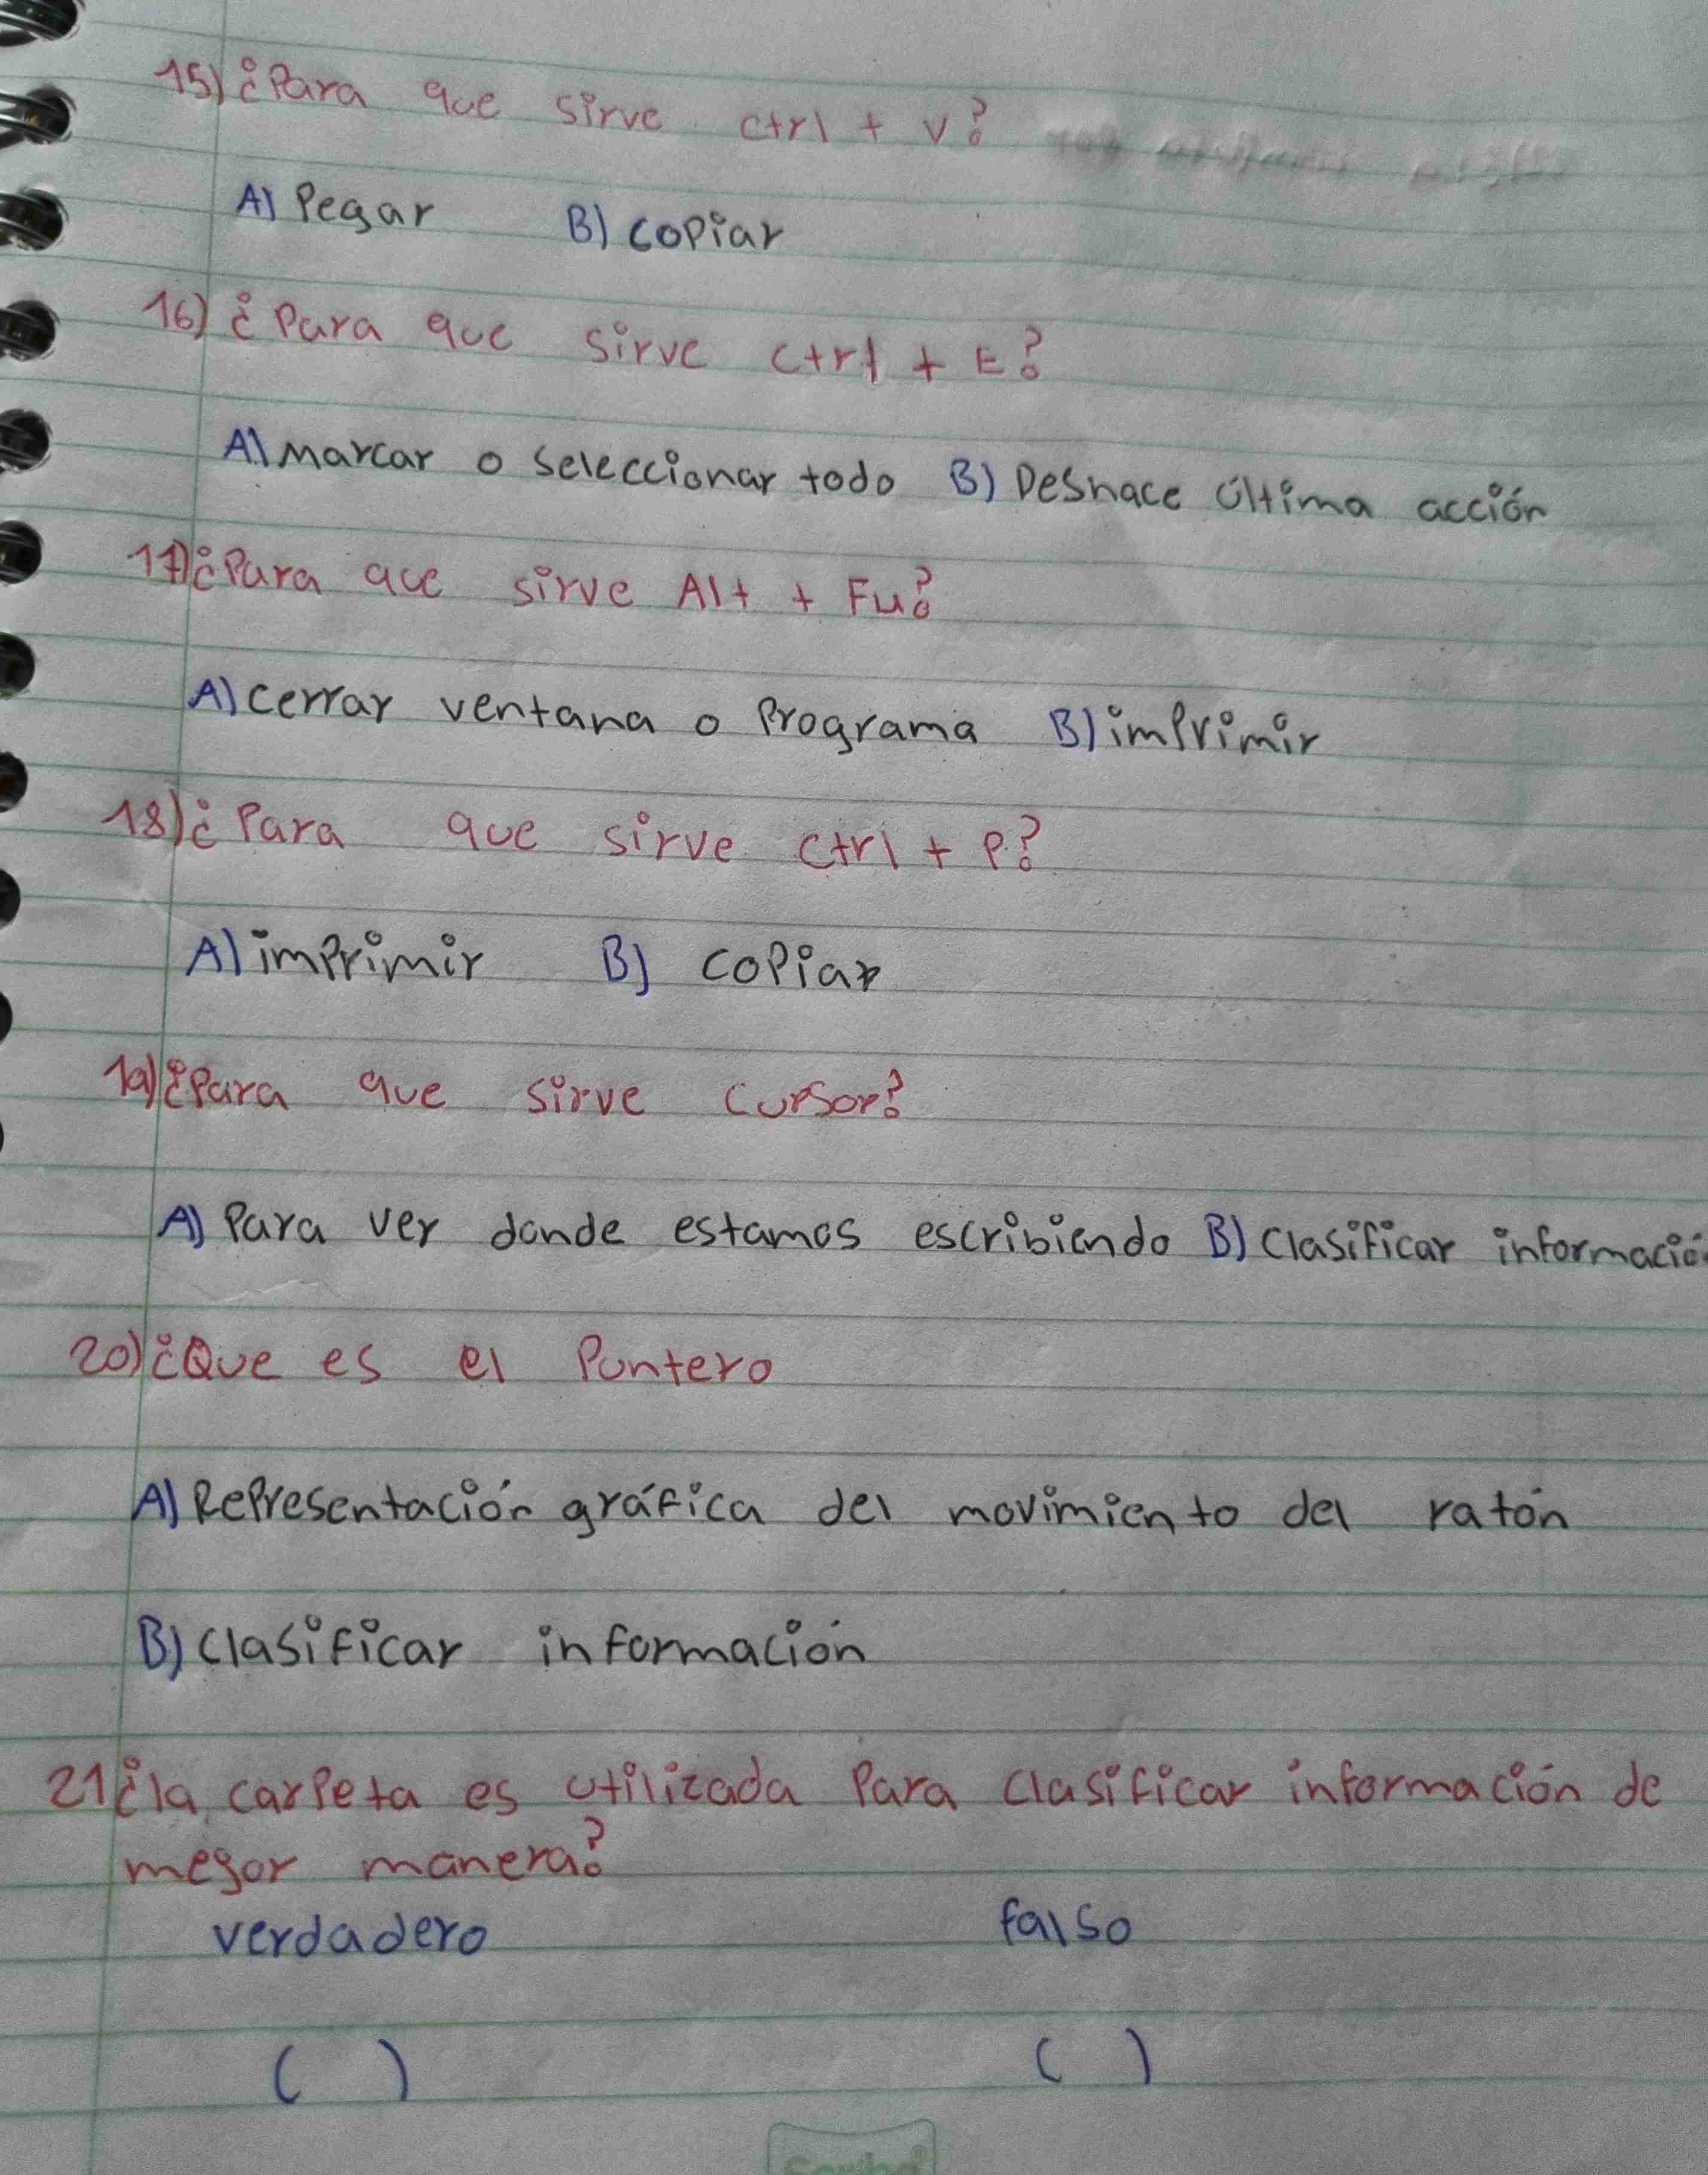 15) ¿Para que sirve ctrl + v?
A) Pegar B) copiar
16) ¿Para que sirve ctrl + E?
A) Marcar o seleccionar todo B) Deshace última acción
17) ¿Para que sirve Alt + F4?
A) cerrar ventana o Programa B) imprimir
18) ¿Para que sirve ctrl + P?
A) imprimir B) copiar
19) ¿Para que sirve cursor?
A) Para ver donde estamos escribiendo B) clasificar informació
20) ¿Que es el Puntero
A) Representación gráfica del movimiento del ratón
B) clasificar información
21 ¿la carpeta es utilizada Para clasificar información de
mejor manera?
verdadero falso
( ) ( )
Scribe